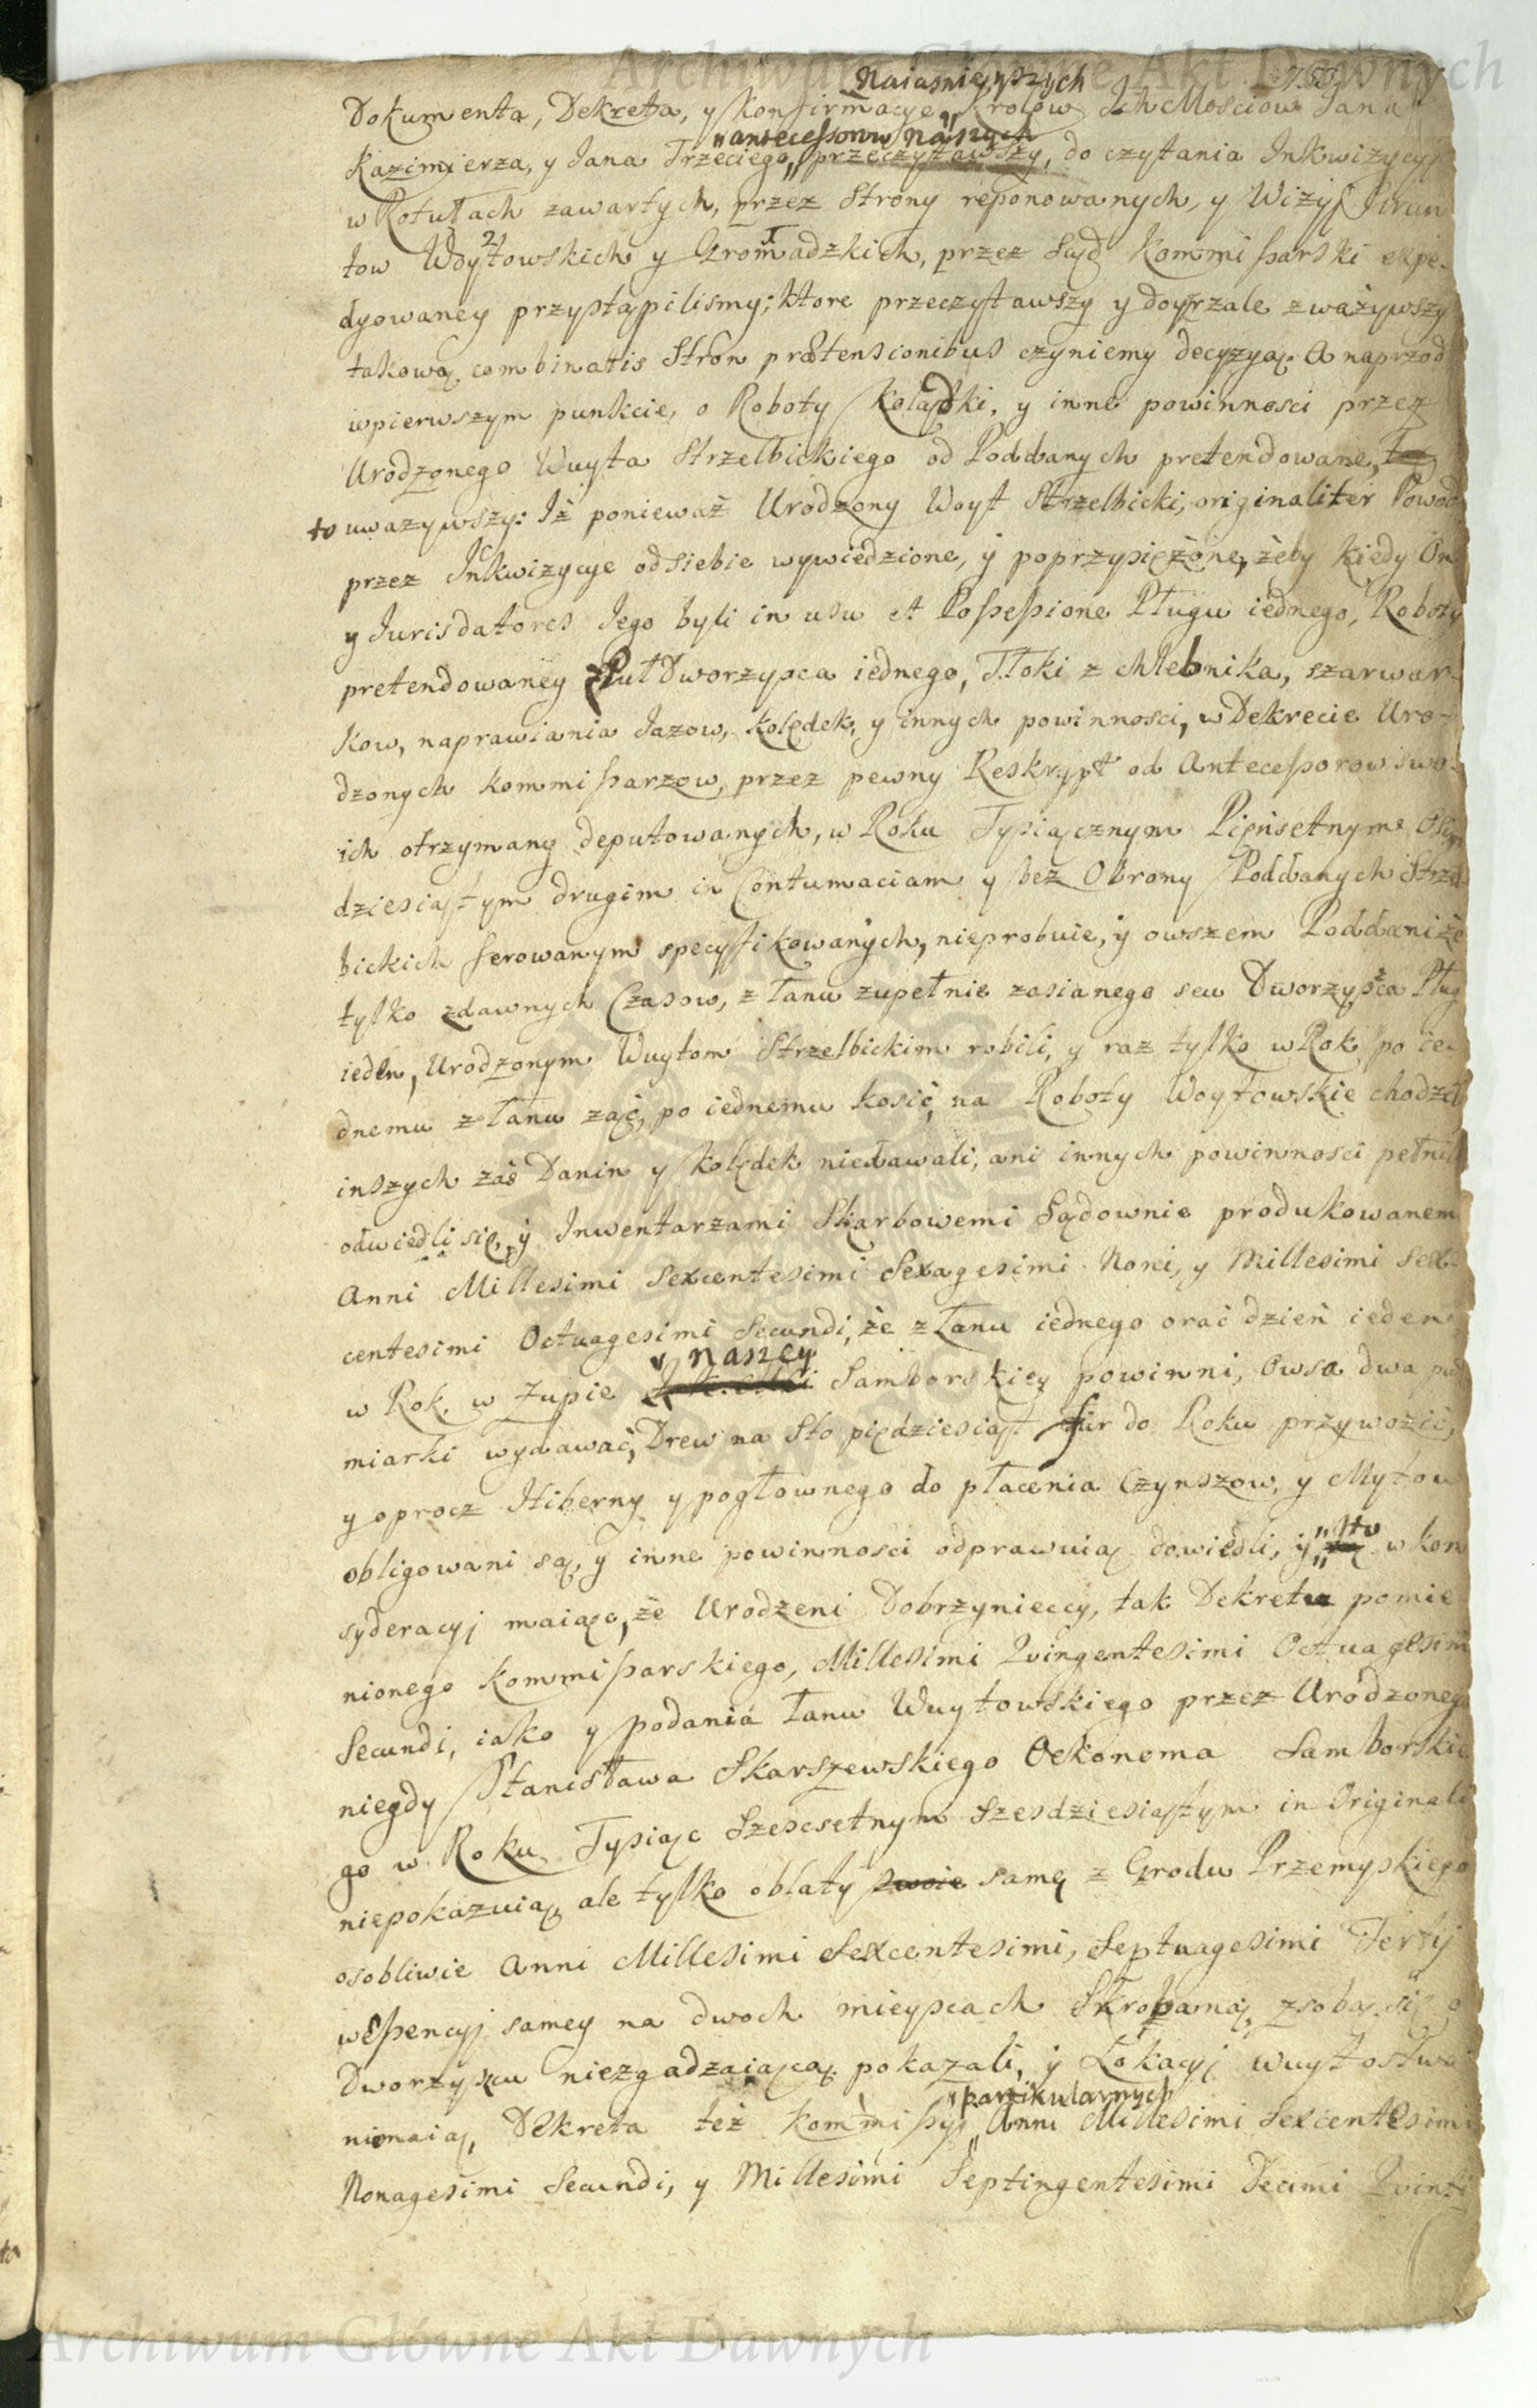 Archiwum Główne Akt Dawnych
Naiasnieyszych
Dokumenta, Dekreta, y konfirmacye „ Krolow Ich Mosciow Jana
„antecessorow naszych
Kazimierza, y Jana Trzeciego „ przeczytawszy, do czytania Inkwizycyi
w Rotułach zawartych, przez Strony reponowanych, y Wizyi Grun
tow Woytowskich y Gromadzkich, przez Sąd Kommissarski expe-
dyowaney przystąpilismy; ktore przeczytawszy y doyrzale zważywszy
takową combinatis Stron prætensionibus czyniemy decyzyą. A naprzod
wpierwszym punkcie, o Roboty Kolądki, y inne powinnosci przez
Urodzonego Wuyta Strzelbickiego od Poddanych pretendowane,
to uwazywszy: Iż ponieważ Urodzony Woyt Strzelbicki, originaliter Powod
przez Inkwizycye odsiebie wywiedzione, y poprzysiężone, żeby kiedy On
y Jurisdatores Jego byli in usu et Possessione Pługu iednego, Roboty
pretendowaney z Puł Dworzysca iednego, Tłoki z chlebnika, szarwar-
kow, naprawiania Jazow, kolędek, y innych powinnosci, w Dekrecie Uro-
dzonych kommissarzow, przez pewny Reskrypt od Antecessorow swo-
ich otrzymany deputowanych, w Roku Tysiącznym Pięńsetnym Osm
dziesiątym drugim in Contumaciam y bez Obrony Poddanych Strzel
bickich ferowanym specyfikowanych, nieprobuie, y owszem Poddani że
tylko zdawnych Czasow, z Łanu zupełnie zasianego seu Dworzysca Pług
ieden, Urodzonym Wuytom Strzelbickim robili, y raz tylko w Rok po ie-
dnemu z Łanu żąć, po iednemu kosić, na Roboty Woytowskie chodzili
inszych zaś Danin y kolędek niedawali, ani innych powinnosci pełnili
odwiedli się, y Inwentarzami Skarbowemi Sądownie produkowanemi
Anni Millesimi Sexcentesimi Sexagesimi Noni, y Millesimi Sex-
centesimi Octuagesimi Secundi, że z Łanu iednego orać dzień ieden,
naszey
w Rok, w Żupie Samborskiey powinni, Owsa dwa pul
miarki wydawać, Drew na Sto pięćdziesiąt fur do Roku przywozić,
y oprocz Hiberny y pogłownego do płacenia Czynszow, y Mytow
obligowani są, y inne powinnosci odprawuią dowiedli, y „to w kon
syderacyi maiąc, że Urodzeni Dobrzynieccy, tak Dekretu pomie
nionego kommissarskiego, Millesimi Quingentesimi Octuagesimi
Secundi, iako y podania Łanu Wuytowskiego przez Urodzonego
niegdy Stanisława Skarszewskiego Oekonoma Samborskie
go w Roku Tysiąc Szescsetnym Szesdziesiątym in Originali
niepokazuią, ale tylko oblaty swoie samę z Grodu Przemyskiego
osobliwie Anni Millesimi Sexcentesimi, Septuagesimi Tertij
w Essencyi samey na dwoch mieyscach Skrobaną, zsobą się o
Dworzyscu niezgadzaiącą pokazali, y Lokacyi wuytostwa
„partikularnych
niemaią, Dekreta też kommissyi „ Anni Millesimi Sexcentesimi
Nonagesimi Secundi, y Millesimi Septingentesimi Decimi Quinti
Archiwum Główne Akt Dawnych